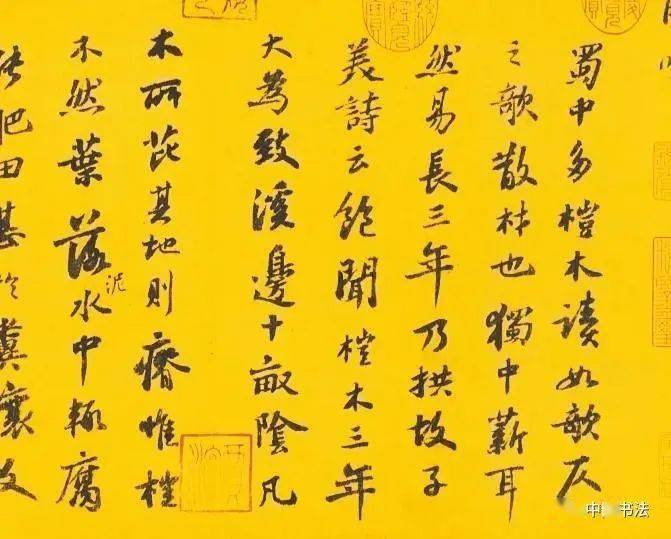 蜀中多榿木讀如欹仄
之欹散材也獨中薪耳
然易長三年乃拱故子
美詩云飽聞榿木三年
大為致溪邊十畝陰凡
木所芘其地則瘠惟榿
不然葉落泥水中輒腐
能肥田甚於糞壤故
中 书法